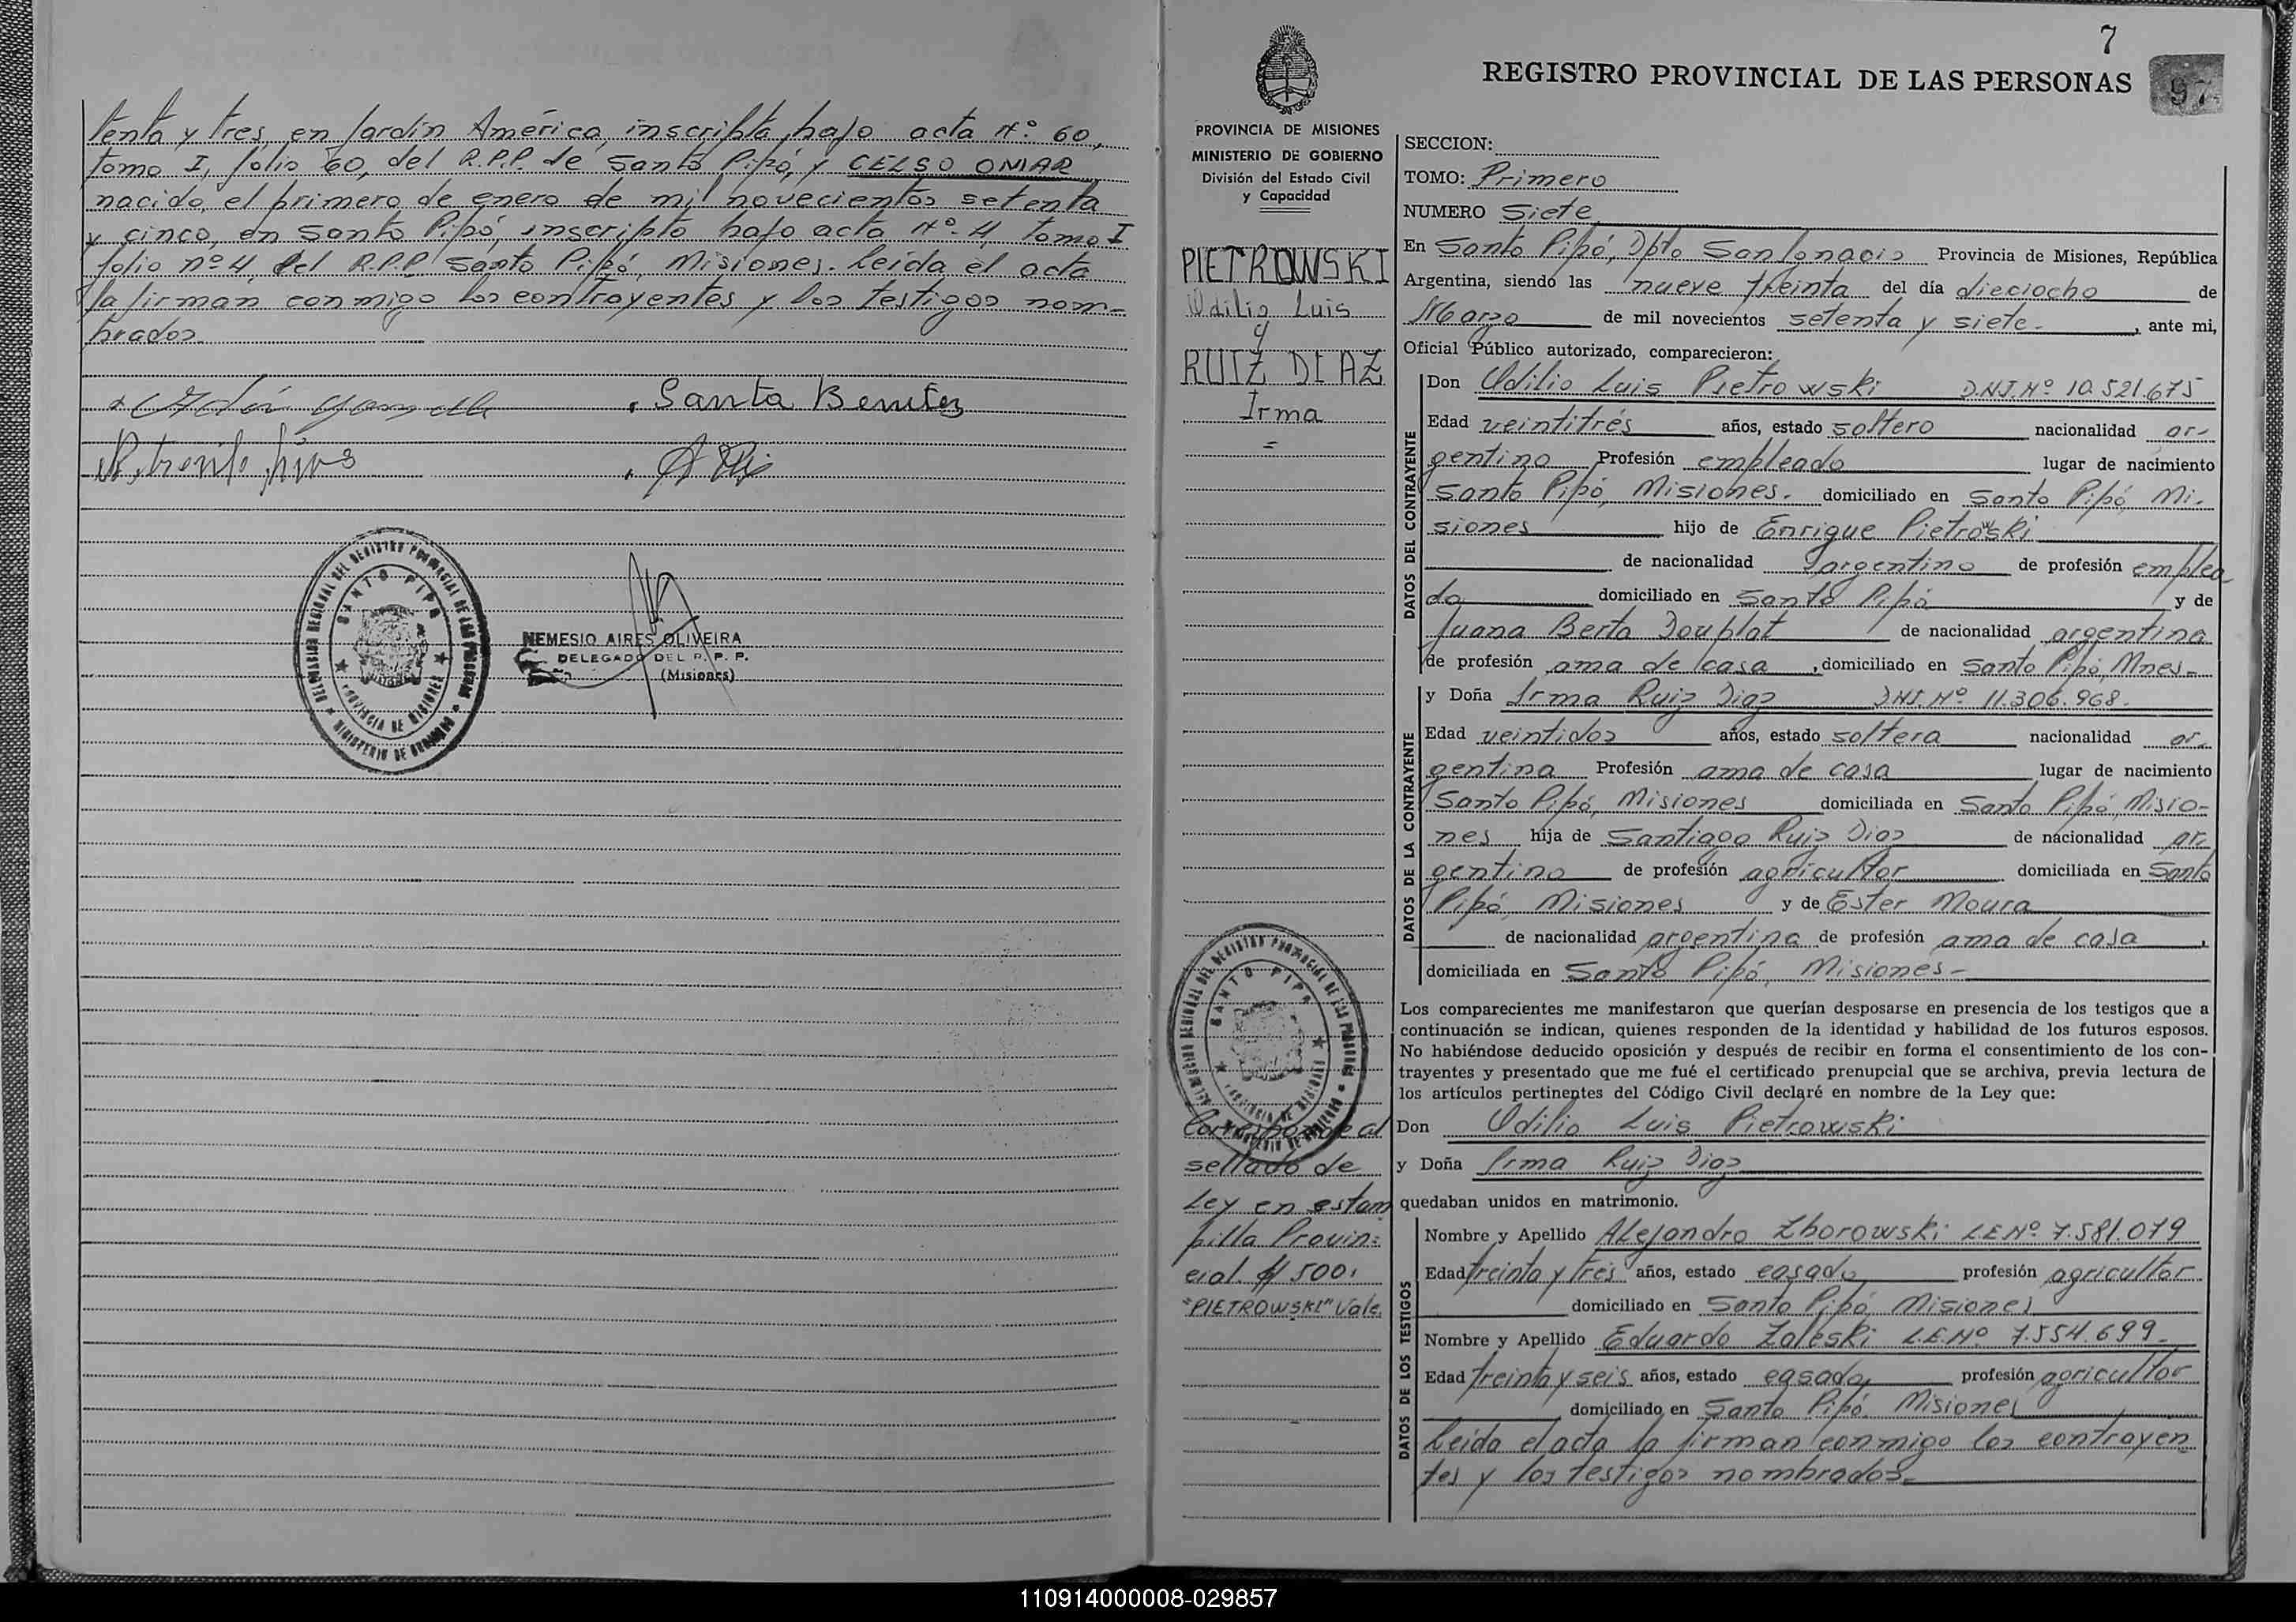 tenta y tres, en Jardín América, inscripta bajo acta Nº 60,
tomo I, folio 60, del R.P.P. de Santo Pipó, y CELSO OMAR
nacido, el primero de enero de mil novecientos setenta
y cinco, en Santo Pipó, inscripto bajo acta Nº 4, tomo I
folio nº 4, del R.P.P. Santo Pipó, Misiones. Leída el acta
la firman conmigo los contrayentes y los testigos nom-
brados.
Santa Benitez
SANTO PIPO
PROVINCIA DE MISIONES
NEMESIO AIRES OLIVEIRA
DELEGADO DEL R. P. P.
(Misiones)
7
REGISTRO PROVINCIAL DE LAS PERSONAS
97
PROVINCIA DE MISIONES
MINISTERIO DE GOBIERNO
División del Estado Civil
y Capacidad
PIETROWSKI
Odilio Luis
y
RUIZ DIAZ
Irma
=
SANTO PIPO
Corresponde al
sellado de
Ley en estam
pilla Provin=
cial. $ 500,
"PIETROWSKI" Vale.
SECCION:
TOMO: Primero
NUMERO Siete
En Santo Pipó, Dpto San Ignacio Provincia de Misiones, República
Argentina, siendo las nueve treinta del día dieciocho de
Marzo de mil novecientos setenta y siete. , ante mi,
Oficial Público autorizado, comparecieron:
DATOS DEL CONTRAYENTE
Don Odilio Luis Pietrowski D.N.I. Nº 10.521.675
Edad veintitrés años, estado soltero nacionalidad ar-
gentino Profesión empleado lugar de nacimiento
Santo Pipó, Misiones. domiciliado en Santo Pipó, Mi-
siones hijo de Enrique Pietrowski
de nacionalidad argentino de profesión emplea-
do domiciliado en Santo Pipó y de
Juana Berta Douplat de nacionalidad argentina
de profesión ama de casa , domiciliado en Santo Pipó, Mnes-
DATOS DE LA CONTRAYENTE
y Doña Irma Ruiz Diaz DNI. Nº 11.306.968.
Edad veintidos años, estado soltera nacionalidad ar-
gentina Profesión ama de casa lugar de nacimiento
Santo Pipó, Misiones domiciliada en Santo Pipó, Misio-
nes hija de Santiago Ruiz Diaz de nacionalidad ar-
gentino de profesión agricultor domiciliada en Santo
Pipó, Misiones y de Ester Moura
de nacionalidad argentina de profesión ama de casa ,
domiciliada en Santo Pipó, Misiones-
Los comparecientes me manifestaron que querían desposarse en presencia de los testigos que a
continuación se indican, quienes responden de la identidad y habilidad de los futuros esposos.
No habiéndose deducido oposición y después de recibir en forma el consentimiento de los con-
trayentes y presentado que me fué el certificado prenupcial que se archiva, previa lectura de
los artículos pertinentes del Código Civil declaré en nombre de la Ley que:
Don Odilio Luis Pietrowski
y Doña Irma Ruiz Diaz
quedaban unidos en matrimonio.
DATOS DE LOS TESTIGOS
Nombre y Apellido Alejandro Zborowski L.E Nº 7.581.079
Edad treinta y tres años, estado casado profesión agricultor
domiciliado en Santo Pipó Misiones
Nombre y Apellido Eduardo Zaleski L.E. Nº 7.554.699-
Edad treinta y seis años, estado casado profesión agricultor
domiciliado en Santo Pipó Misiones
Leída el acta la firman conmigo los contrayen-
tes y los testigos nombrados-
110914000008-029857